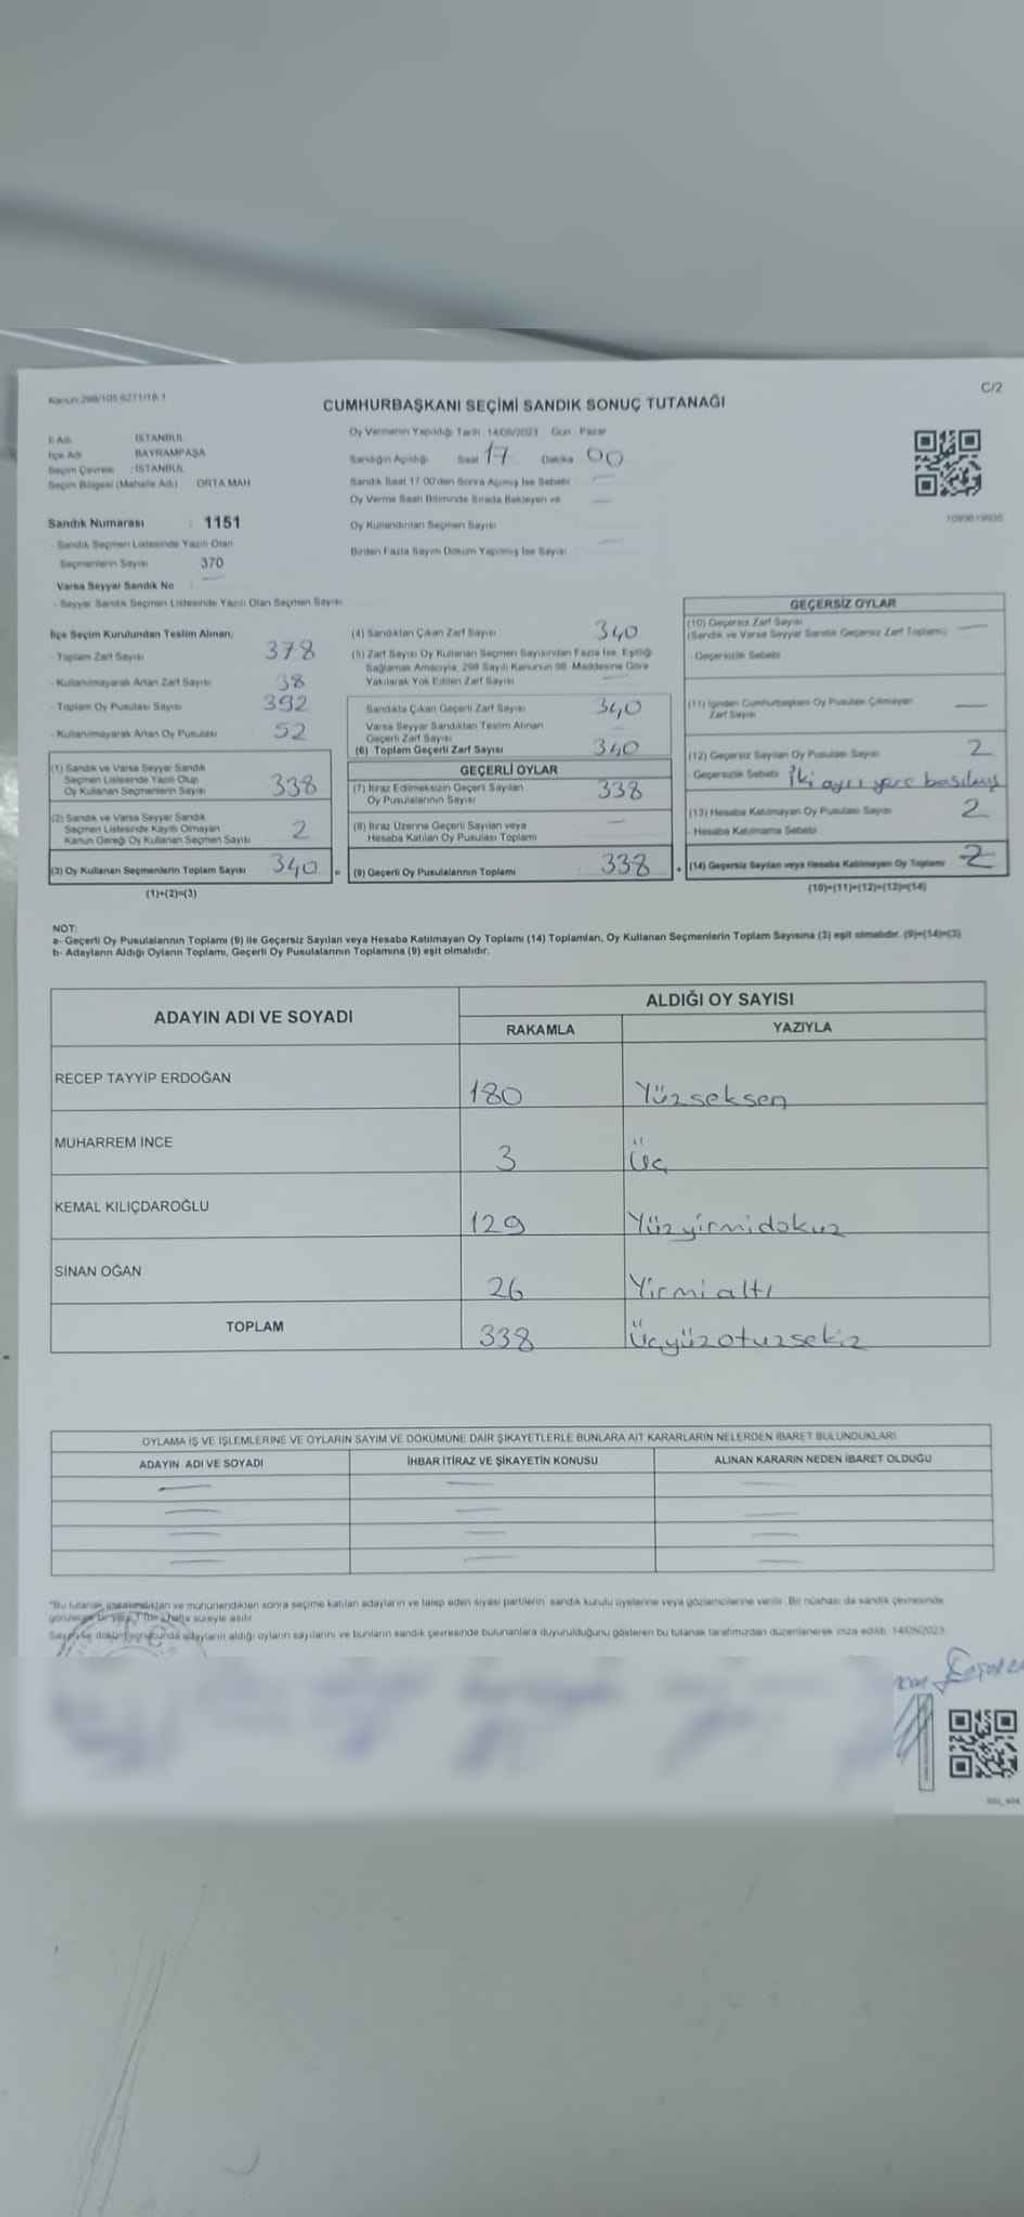 Kanun:298/105 6271/18.1
C/2
CUMHURBAŞKANI SEÇİMİ SANDIK SONUÇ TUTANAĞI
İl Adı İSTANBUL
İlçe Adı BAYRAMPAŞA
Seçim Çevresi : İSTANBUL
Seçim Bölgesi (Mahalle Adı) ORTA MAH
Sandık Numarası : 1151
- Sandık Seçmen Listesinde Yazılı Olan
Seçmenlerin Sayısı 370
Varsa Seyyar Sandık No
- Seyyar Sandık Seçmen Listesinde Yazılı Olan Seçmen Sayısı
Oy Vermenin Yapıldığı Tarih 14/05/2023 Gün Pazar
Sandığın Açıldığı Saat 17 Dakika 00
Sandık Saat 17:00'den Sonra Açılmış İse Sebebi
Oy Verme Saati Bitiminde Sırada Bekleyen ve
Oy Kullandırılan Seçmen Sayısı
Birden Fazla Sayım Döküm Yapılmış İse Sayısı
İlçe Seçim Kurulundan Teslim Alınan;
- Toplam Zarf Sayısı 378
- Kullanılmayarak Artan Zarf Sayısı 38
- Toplam Oy Pusulası Sayısı 392
- Kullanılmayarak Artan Oy Pusulası 52
(1) Sandık ve Varsa Seyyar Sandık
Seçmen Listesinde Yazılı Olup
Oy Kullanan Seçmenlerin Sayısı 338
(2) Sandık ve Varsa Seyyar Sandık
Seçmen Listesinde Kayıtlı Olmayan
Kanun Gereği Oy Kullanan Seçmen Sayısı 2
(3) Oy Kullanan Seçmenlerin Toplam Sayısı 340
(1)+(2)=(3)
(4) Sandıktan Çıkan Zarf Sayısı 340
(5) Zarf Sayısı Oy Kullanan Seçmen Sayısından Fazla İse, Eşitliği
Sağlamak Amacıyla, 298 Sayılı Kanunun 98. Maddesine Göre
Yakılarak Yok Edilen Zarf Sayısı
Sandıkta Çıkan Geçerli Zarf Sayısı 340
Varsa Seyyar Sandıktan Teslim Alınan
Geçerli Zarf Sayısı
(6) Toplam Geçerli Zarf Sayısı 340
GEÇERLİ OYLAR
(7) İtiraz Edilmeksizin Geçerli Sayılan
Oy Pusulalarının Sayısı 338
(8) İtiraz Üzerine Geçerli Sayılan veya
Hesaba Katılan Oy Pusulası Toplamı
(9) Geçerli Oy Pusulalarının Toplamı 338
GEÇERSİZ OYLAR
(10) Geçersiz Zarf Sayısı
(Sandık ve Varsa Seyyar Sandık Geçersiz Zarf Toplamı)
- Geçersizlik Sebebi
(11) İçinden Cumhurbaşkanı Oy Pusulası Çıkmayan
Zarf Sayısı
(12) Geçersiz Sayılan Oy Pusulası Sayısı 2
- Geçersizlik Sebebi İki ayrı yere basılmış
(13) Hesaba Katılmayan Oy Pusulası Sayısı 2
- Hesaba Katılmama Sebebi
(14) Geçersiz Sayılan veya Hesaba Katılmayan Oy Toplamı 2
(10)+(11)+(12)+(13)=(14)
NOT:
a- Geçerli Oy Pusulalarının Toplamı (9) ile Geçersiz Sayılan veya Hesaba Katılmayan Oy Toplamı (14) Toplamları, Oy Kullanan Seçmenlerin Toplam Sayısına (3) eşit olmalıdır. (9)+(14)=(3)
b- Adayların Aldığı Oyların Toplamı, Geçerli Oy Pusulalarının Toplamına (9) eşit olmalıdır.
ADAYIN ADI VE SOYADI
ALDIĞI OY SAYISI
RAKAMLA YAZIYLA
RECEP TAYYİP ERDOĞAN 180 Yüzseksen
MUHARREM İNCE 3 Üç
KEMAL KILIÇDAROĞLU 129 Yüzyirmidokuz
SİNAN OĞAN 26 Yirmialtı
TOPLAM 338 Üçyüzotuzsekiz
OYLAMA İŞ VE İŞLEMLERİNE VE OYLARIN SAYIM VE DÖKÜMÜNE DAİR ŞİKAYETLERLE BUNLARA AİT KARARLARIN NELERDEN İBARET BULUNDUKLARI
ADAYIN ADI VE SOYADI İHBAR İTİRAZ VE ŞİKAYETİN KONUSU ALINAN KARARIN NEDEN İBARET OLDUĞU
"Bu tutanak imzalandıktan ve mühürlendikten sonra seçime katılan adayların ve talep eden siyasi partilerin sandık kurulu üyelerine veya gözlemcilerine verilir. Bir nüshası da sandık çevresinde
bir hafta süreyle asılır
adayların aldığı oyların sayılarını ve bunların sandık çevresinde bulunanlara duyurulduğunu gösteren bu tutanak tarafımızdan düzenlenerek imza edildi. 14/05/2023